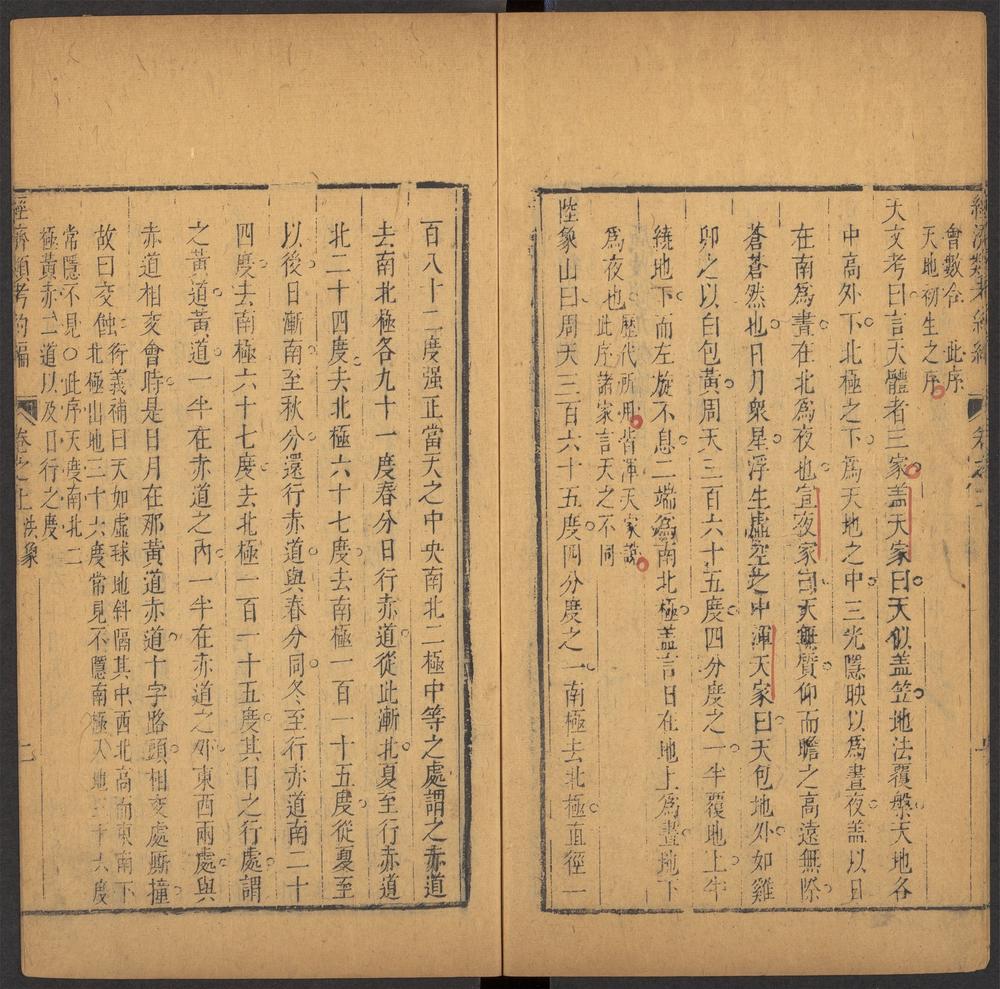 會數合 此序
天地初生之序
天文考曰言天體者三家盖天家曰天似盖笠地法覆槃天地各
中高外下北極之下爲天地之中三光隱映以爲晝夜盖以日
在南爲晝在北爲夜也宣夜家曰天無質仰而瞻之高遠無際
蒼蒼然也日月衆星浮生虛空之中渾天家曰天包地外如雞
卵之以白包黃周天三百六十五度四分度之一半覆地上半
繞地下而左旋不息二端爲南北極盖言日在地上爲晝地下
爲夜也歷代所用皆渾天家說
此序諸家言天之不同
陸象山曰周天三百六十五度四分度之一南極去北極直徑一
百八十二度强正當天之中央南北二極中等之處謂之赤道
去南北極各九十一度春分日行赤道從此漸北夏至行赤道
北二十四度去北極六十七度去南極一百一十五度從夏至
以後日漸南至秋分還行赤道與春分同冬至行赤道南二十
四度去南極六十七度去北極一百一十五度其日之行處謂
之黃道黃道一半在赤道之內一半在赤道之外東西兩處與
赤道相交會時是日月在那黃道赤道十字路頭相交處廝撞
故曰交蝕衍義補曰天如虛球地斜隔其中西北高而東南下
北極出地三十六度常見不隱南極入地三十六度
常隱不見○此序天度南北二
極黃赤二道以及日行之度
經濟類考約編 卷之上 洪象